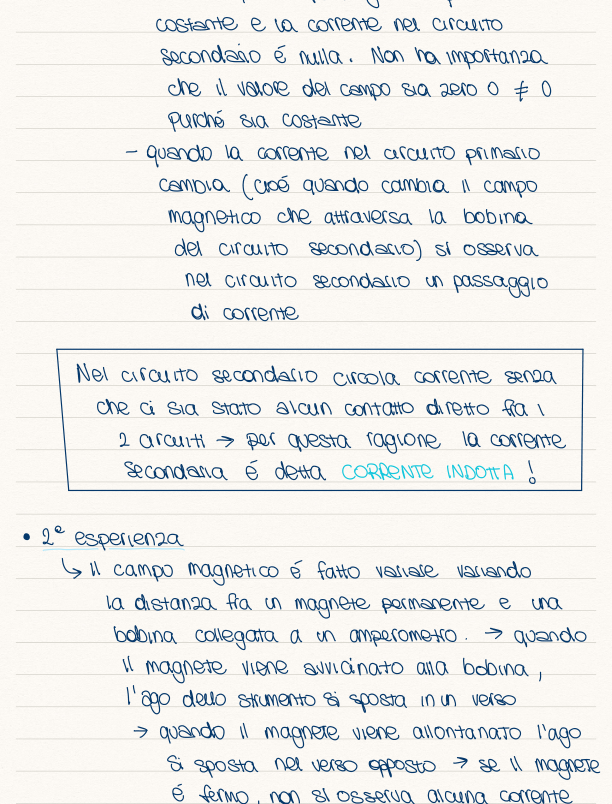 costante e la corrente nel circuito
secondario é nulla. Non ha importanza
che il valore del campo sia zero o ≠ 0
purché sia costante
- quando la corrente nel circuito primario
cambia (cioé quando cambia il campo
magnetico che attraversa la bobina
del circuito secondario) si osserva
nel circuito secondario un passaggio
di corrente
Nel circuito secondario circola corrente senza
che ci sia stato alcun contatto diretto fra i
2 circuiti → per questa ragione la corrente
secondaria é detta CORRENTE INDOTTA !
• 2ª esperienza
↳ il campo magnetico é fatto variare variando
la distanza fra un magnete permanente e una
bobina collegata a un amperometro. → quando
il magnete viene avvicinato alla bobina,
l'ago dello strumento si sposta in un verso
→ quando il magnete viene allontanato l'ago
si sposta nel verso opposto → se il magnete
é fermo, non si osserva alcuna corrente